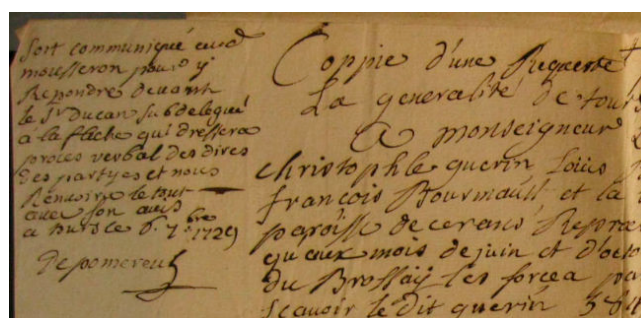 Soit communiqué aud
mousseron pour y
Repondre devant
le Sr Ducan subdelegué
à la fleche qui dressera
proces verbal des dires
des partyes et nous
Renvoira le tout
avec son avis
a tours le 6. 7.bre 1729
De pomereu
Coppie d'une Requeste
La generalité de tour
A monseigneur
christophle guerin Louis
francois Bourmault, et la
paroisse de cerans Repre
qu'aux mois de juin et d'octo
du Brossay les forcea
Scavoir le dit guerin 38